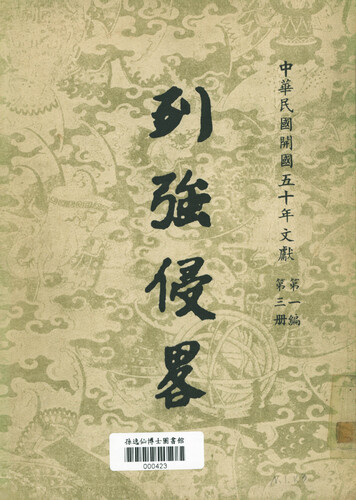 中華民國開國五十年文獻
第一編
第三册
列強侵畧
孫逸仙博士圖書館
000423